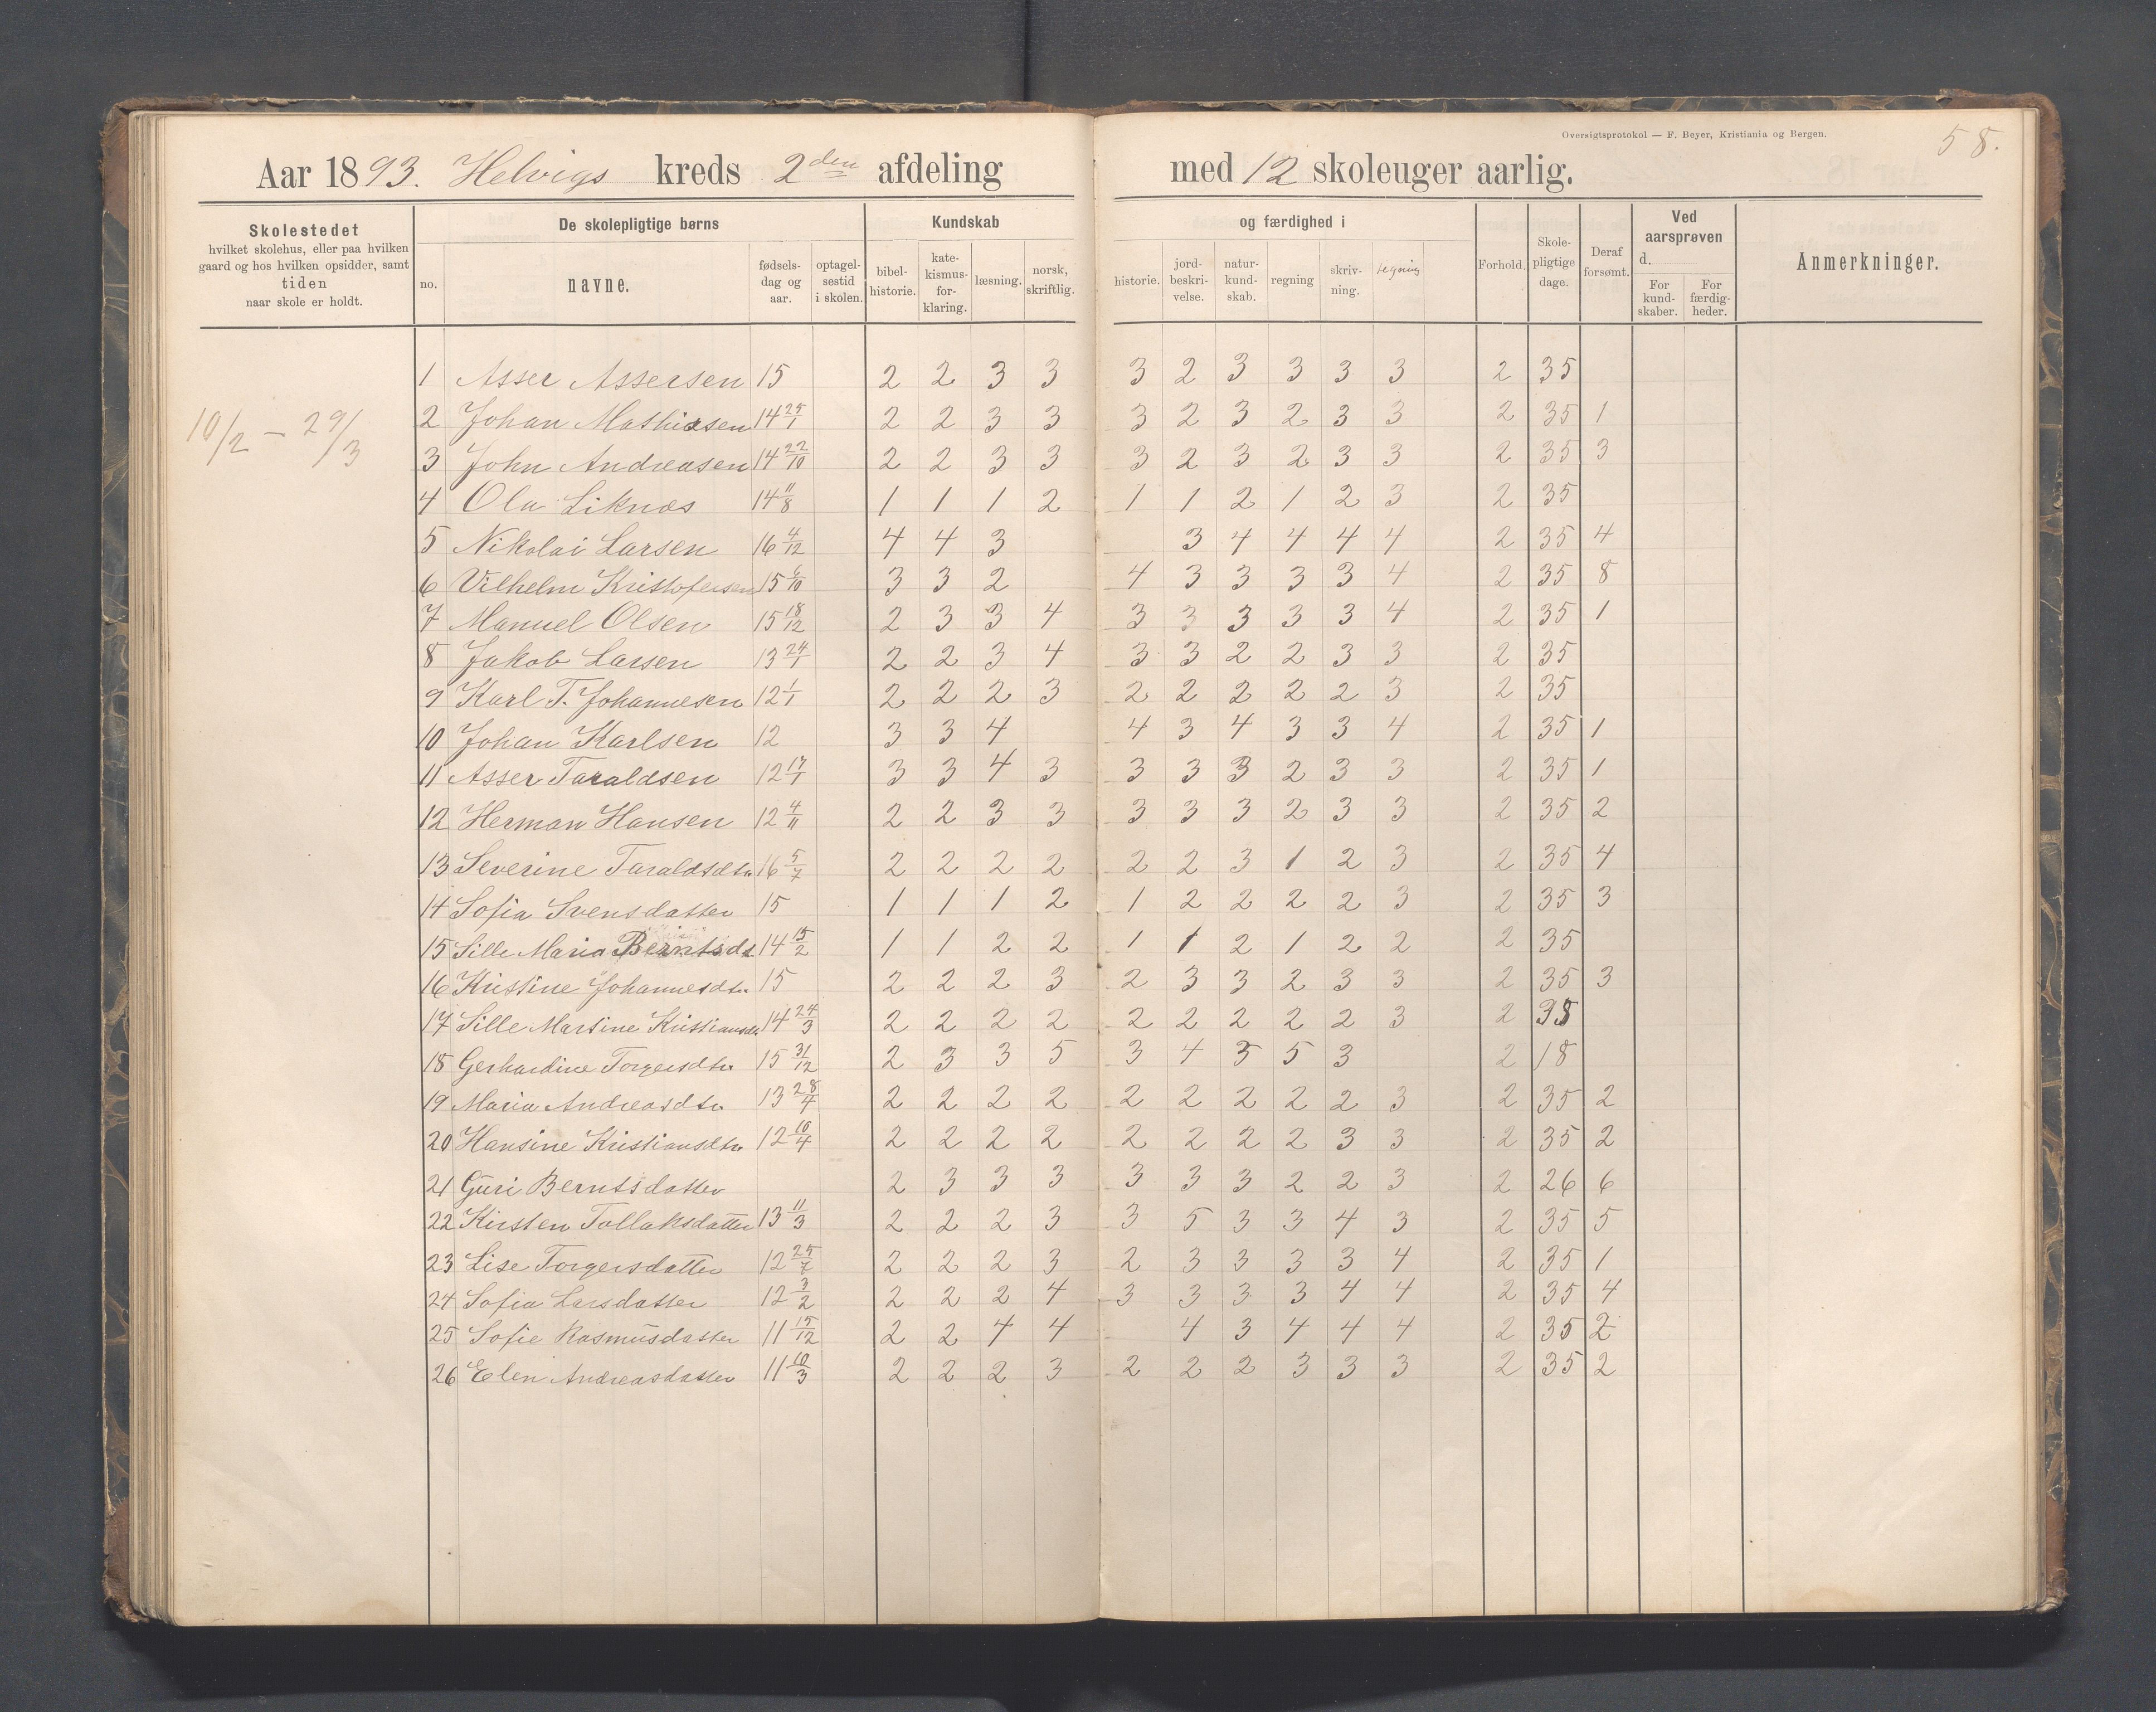 Oversigtsprotokol — F. Beyer, Kristiania og Bergen.
58.
Aar 1893. Helvigs kreds 2den afdeling med 12 skoleuger aarlig.
Skolestedet hvilket skolehus, eller paa hvilken gaard og hos hvilken opsidder, samt tiden naar skole er holdt.
De skolepligtige børns
no. navne. fødsels-dag og aar. optagel-sestid i skolen.
Kundskab og færdighed i
bibel-historie. kate-kismus-for-klaring. læsning. norsk, skriftlig. historie. jord-beskri-velse. natur-kund-skab. regning skriv-ning. tegning
Forhold. Skole-pligtige dage. Deraf forsømt.
Ved aarsprøven d. For kund-skaber. For færdig-heder.
Anmerkninger.
10/2 – 29/3
1 Asser Assersen 15 2 2 3 3 3 2 3 3 3 3 2 35
2 Johan Mathiasen 14 25/1 2 2 3 3 3 2 3 2 3 3 2 35 1
3 John Andreasen 14 22/10 2 2 3 3 3 2 3 2 3 3 2 35 3
4 Ola Liknes 14 11/8 1 1 1 2 1 1 2 1 2 3 2 35
5 Nikolai Larsen 16 4/12 4 4 3 3 4 4 4 4 2 35 4
6 Vilhelm Kristofersen 15 6/10 3 3 2 4 3 3 3 3 4 2 35 8
7 Manuel Olsen 15 18/12 2 3 3 4 3 3 3 3 3 4 2 35 1
8 Jakob Larsen 13 24/1 2 2 3 4 3 3 2 2 3 3 2 35
9 Karl T. Johannesen 12 1/1 2 2 2 3 2 2 2 2 2 3 2 35
10 Johan Karlsen 12 3 3 4 4 3 4 3 3 4 2 35 1
11 Asser Taraldsen 12 17/1 3 3 4 3 3 3 3 2 3 3 2 35 1
12 Herman Hansen 12 4/11 2 2 3 3 3 3 3 2 3 3 2 35 2
13 Severine Taraldsdtr 16 5/7 2 2 2 2 2 2 3 1 2 3 2 35 4
14 Sofia Svensdatter 15 1 1 1 2 1 2 2 2 2 3 2 35 3
15 Sille Maria Berntsdt 14 15/2 1 1 2 2 1 1 2 1 2 2 2 35
16 Kristine Johannesdtr 15 2 2 2 3 2 3 3 2 3 3 2 35 3
17 Sille Martine Kristiansdtr 14 24/3 2 2 2 2 2 2 2 2 2 3 2 35
18 Gerhardine Torgersdtr 15 31/12 2 3 3 5 3 4 3 5 3 2 18
19 Maria Andreasdtr 13 28/4 2 2 2 2 2 2 2 2 2 3 2 35 2
20 Hansine Kristiansdtr 12 10/4 2 2 2 2 2 2 2 2 3 3 2 35 2
21 Guri Berntsdatter 2 3 3 3 3 3 3 2 2 3 2 26 6
22 Kirsten Tollaksdatter 13 11/3 2 2 2 3 3 5 3 3 4 3 2 35 5
23 Lise Torgersdatter 12 25/7 2 2 2 3 2 3 3 3 3 4 2 35 1
24 Sofia Larsdatter 12 3/2 2 2 2 4 3 3 3 3 4 4 2 35 4
25 Sofie Rasmusdatter 11 15/12 2 2 4 4 4 3 4 4 4 2 35 2
26 Elen Andreasdatter 11 10/3 2 2 2 3 2 2 2 3 3 3 2 35 2